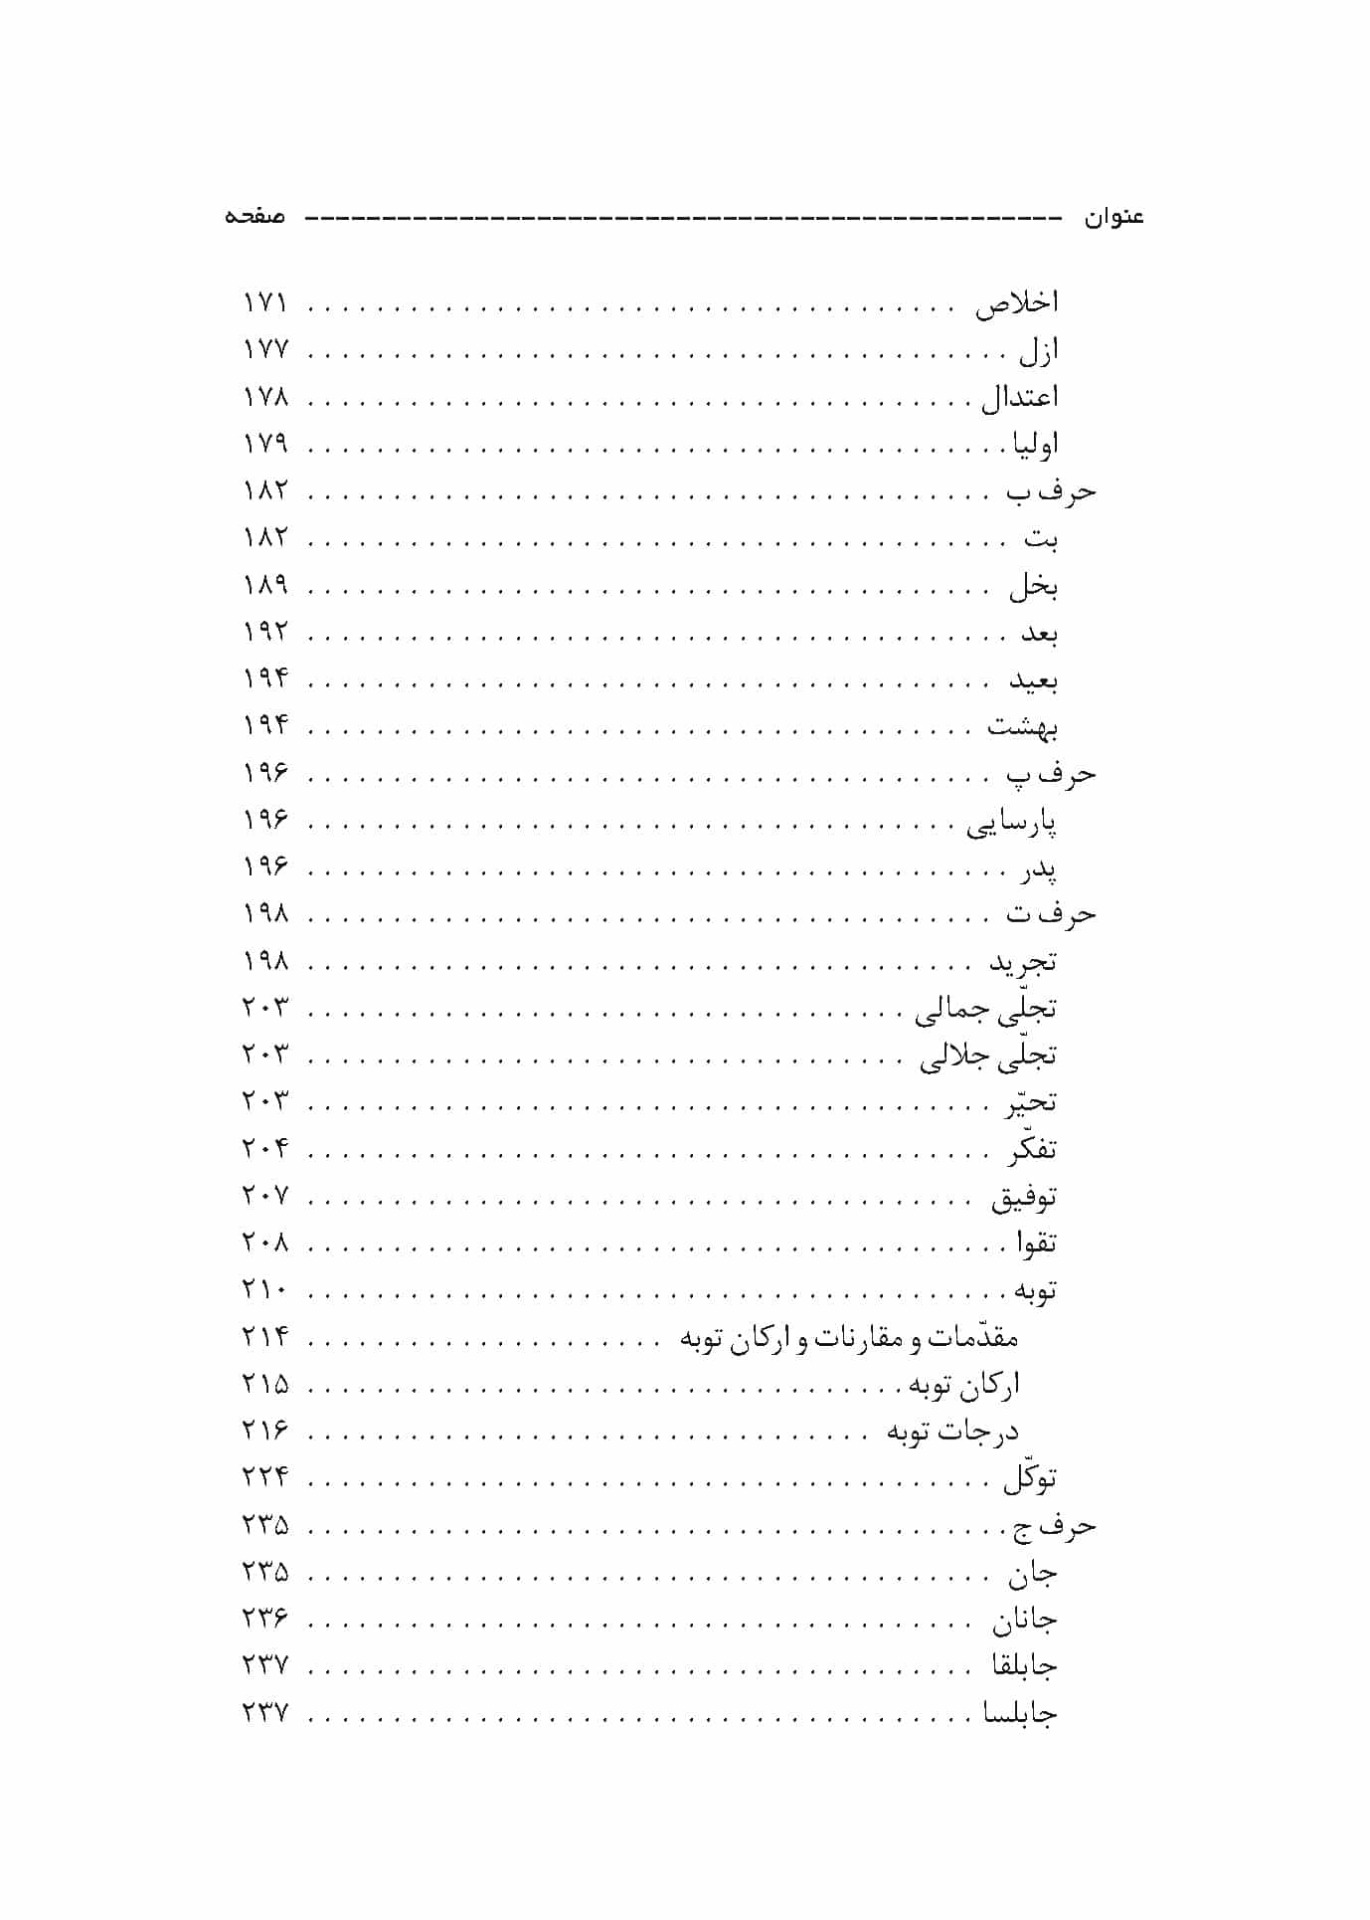 عنوان ------------------------------------------------ صفحه
اخلاص . . . . . . . . . . . . . . . . . . . . ۱۷۱
ازل . . . . . . . . . . . . . . . . . . . . ۱۷۷
اعتدال . . . . . . . . . . . . . . . . . . . . ۱۷۸
اولیا . . . . . . . . . . . . . . . . . . . . ۱۷۹
حرف ب . . . . . . . . . . . . . . . . . . . . ۱۸۲
بت . . . . . . . . . . . . . . . . . . . . ۱۸۲
بخل . . . . . . . . . . . . . . . . . . . . ۱۸۹
بعد . . . . . . . . . . . . . . . . . . . . ۱۹۲
بعید . . . . . . . . . . . . . . . . . . . . ۱۹۴
بهشت . . . . . . . . . . . . . . . . . . . . ۱۹۴
حرف پ . . . . . . . . . . . . . . . . . . . . ۱۹۶
پارسایی . . . . . . . . . . . . . . . . . . . . ۱۹۶
پدر . . . . . . . . . . . . . . . . . . . . ۱۹۶
حرف ت . . . . . . . . . . . . . . . . . . . . ۱۹۸
تجرید . . . . . . . . . . . . . . . . . . . . ۱۹۸
تجلّی جمالی . . . . . . . . . . . . . . . . . . . . ۲۰۳
تجلّی جلالی . . . . . . . . . . . . . . . . . . . . ۲۰۳
تحیّر . . . . . . . . . . . . . . . . . . . . ۲۰۳
تفکّر . . . . . . . . . . . . . . . . . . . . ۲۰۴
توفیق . . . . . . . . . . . . . . . . . . . . ۲۰۷
تقوا . . . . . . . . . . . . . . . . . . . . ۲۰۸
توبه . . . . . . . . . . . . . . . . . . . . ۲۱۰
مقدّمات و مقارنات و ارکان توبه . . . . . . . . . . . . . . . . . . . . ۲۱۴
ارکان توبه . . . . . . . . . . . . . . . . . . . . ۲۱۵
درجات توبه . . . . . . . . . . . . . . . . . . . . ۲۱۶
توکّل . . . . . . . . . . . . . . . . . . . . ۲۲۴
حرف ج . . . . . . . . . . . . . . . . . . . . ۲۳۵
جان . . . . . . . . . . . . . . . . . . . . ۲۳۵
جانان . . . . . . . . . . . . . . . . . . . . ۲۳۶
جابلقا . . . . . . . . . . . . . . . . . . . . ۲۳۷
جابلسا . . . . . . . . . . . . . . . . . . . . ۲۳۷